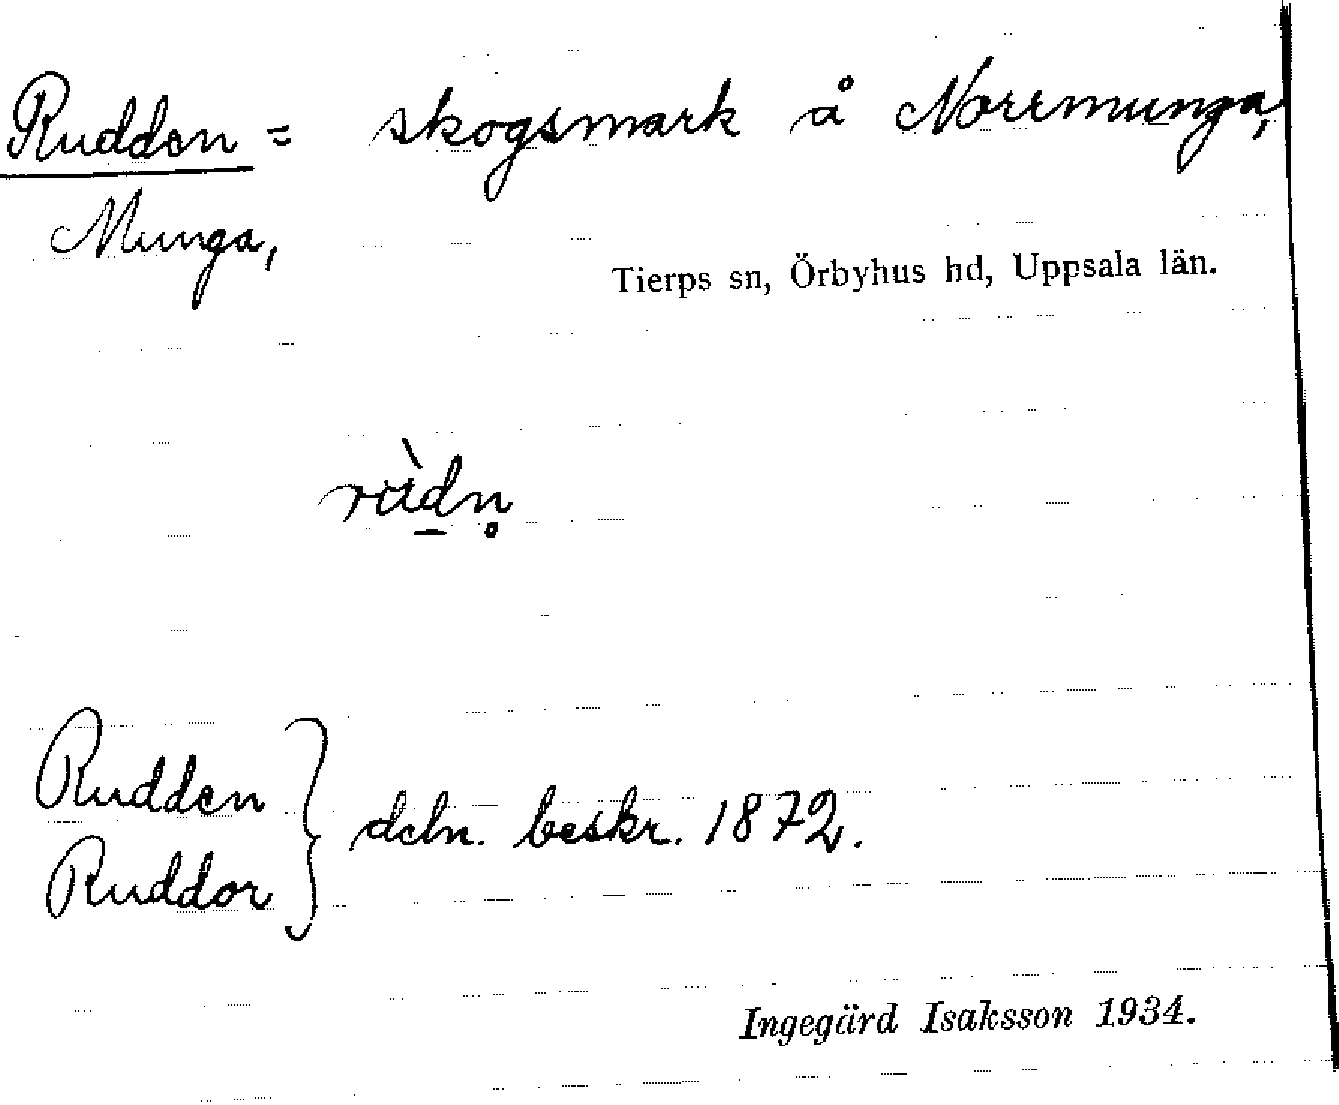 Rudden = skogsmark å Norrmunga,
Munga,
Tierps sn, Örbyhus hd, Uppsala län.
rùdn̥
Rudden
Ruddor } deln. beskr. 1872.
Ingegärd Isaksson 1934.